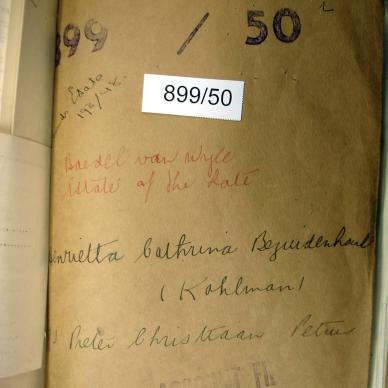 899 / 50
899/50
Boedel van wyle
Estate of the late
Henrietta Cathrina Bezuidenhout
(Kohlman)
Pieter Christiaan Petrus
ACCOUNT